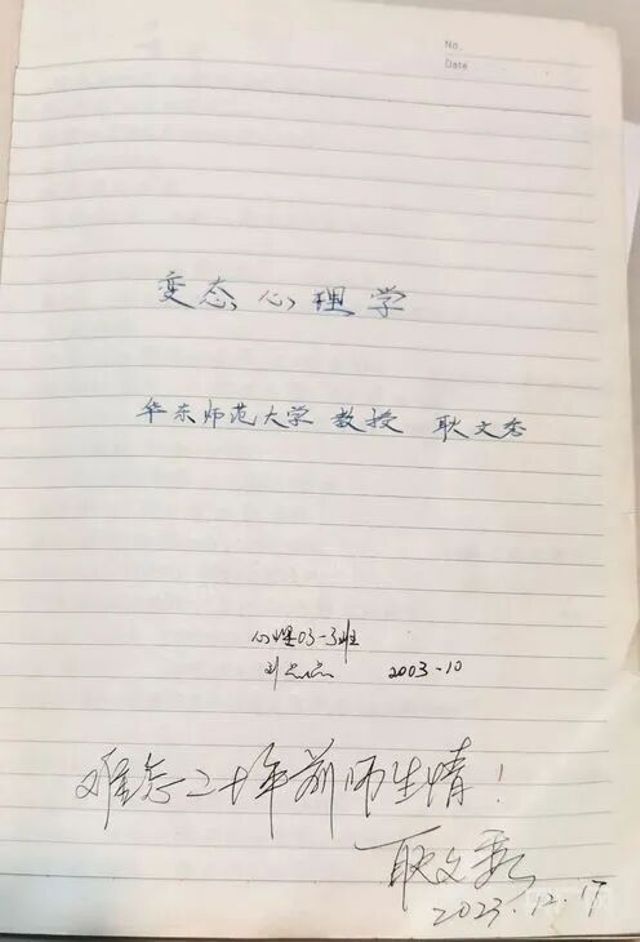 No.
Date
变态心理学
华东师范大学 教授 耿文秀
心理03-3班
刘 2003-10
难忘二十年前师生情！
耿文秀
2023.12.17